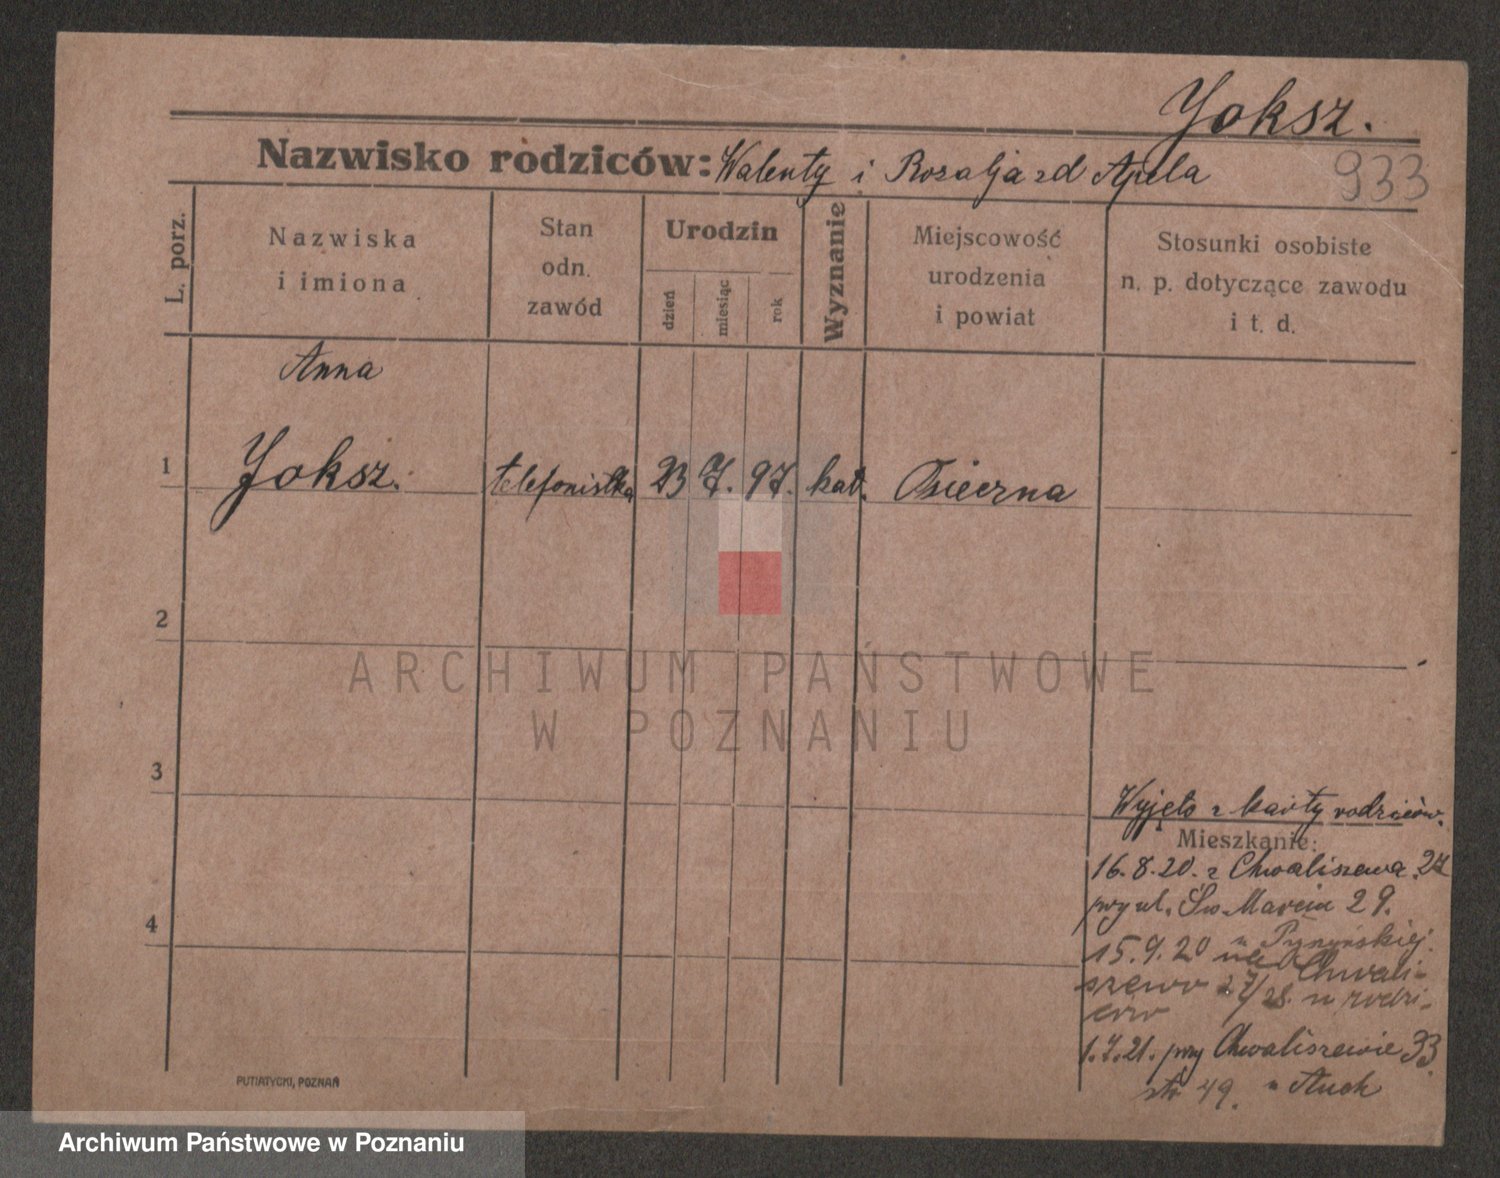 Yoksz.
Nazwisko rodziców: Walenty i Rozalja zd Apela
933
L. porz.
Nazwiska
i imiona
Stan
odn.
zawód
Urodzin
dzień
miesiąc
rok
Wyznanie
Miejscowość
urodzenia
i powiat
Stosunki osobiste
n. p. dotyczące zawodu
i t. d.
Anna
1 Yoksz. telefonistka 23 7. 97. kat. Osieczna
2
ARCHIWUM PAŃSTWOWE
W POZNANIU
3
Wyjęto z karty rodziców.
Mieszkanie:
16.8.20. z Chwaliszewa 27
przy ul. Św. Marcin 29.
4
15.9.20 u
na Chwali-
szewo 27/28. u rodzi-
ców
1.7.21. przy Chwaliszewie 33
str 49. u
PUTIATYCKI, POZNAŃ
Archiwum Państwowe w Poznaniu